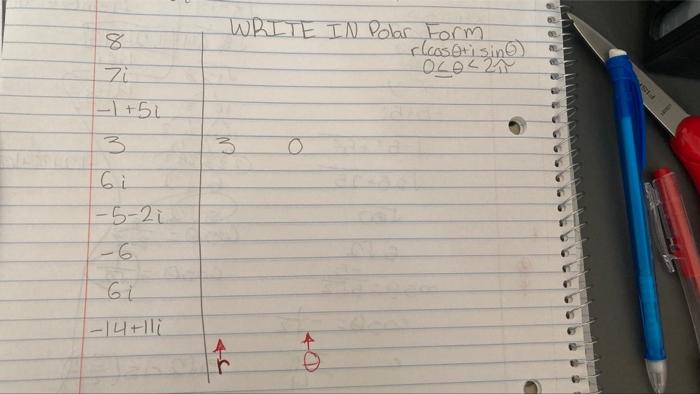 WRITE IN Polar Form
r(cosθ+i sinθ)
0≤θ<2π
8
7i
-1+5i
3 3 0
6i
-5-2i
-6
6i
-14+11i
r θ